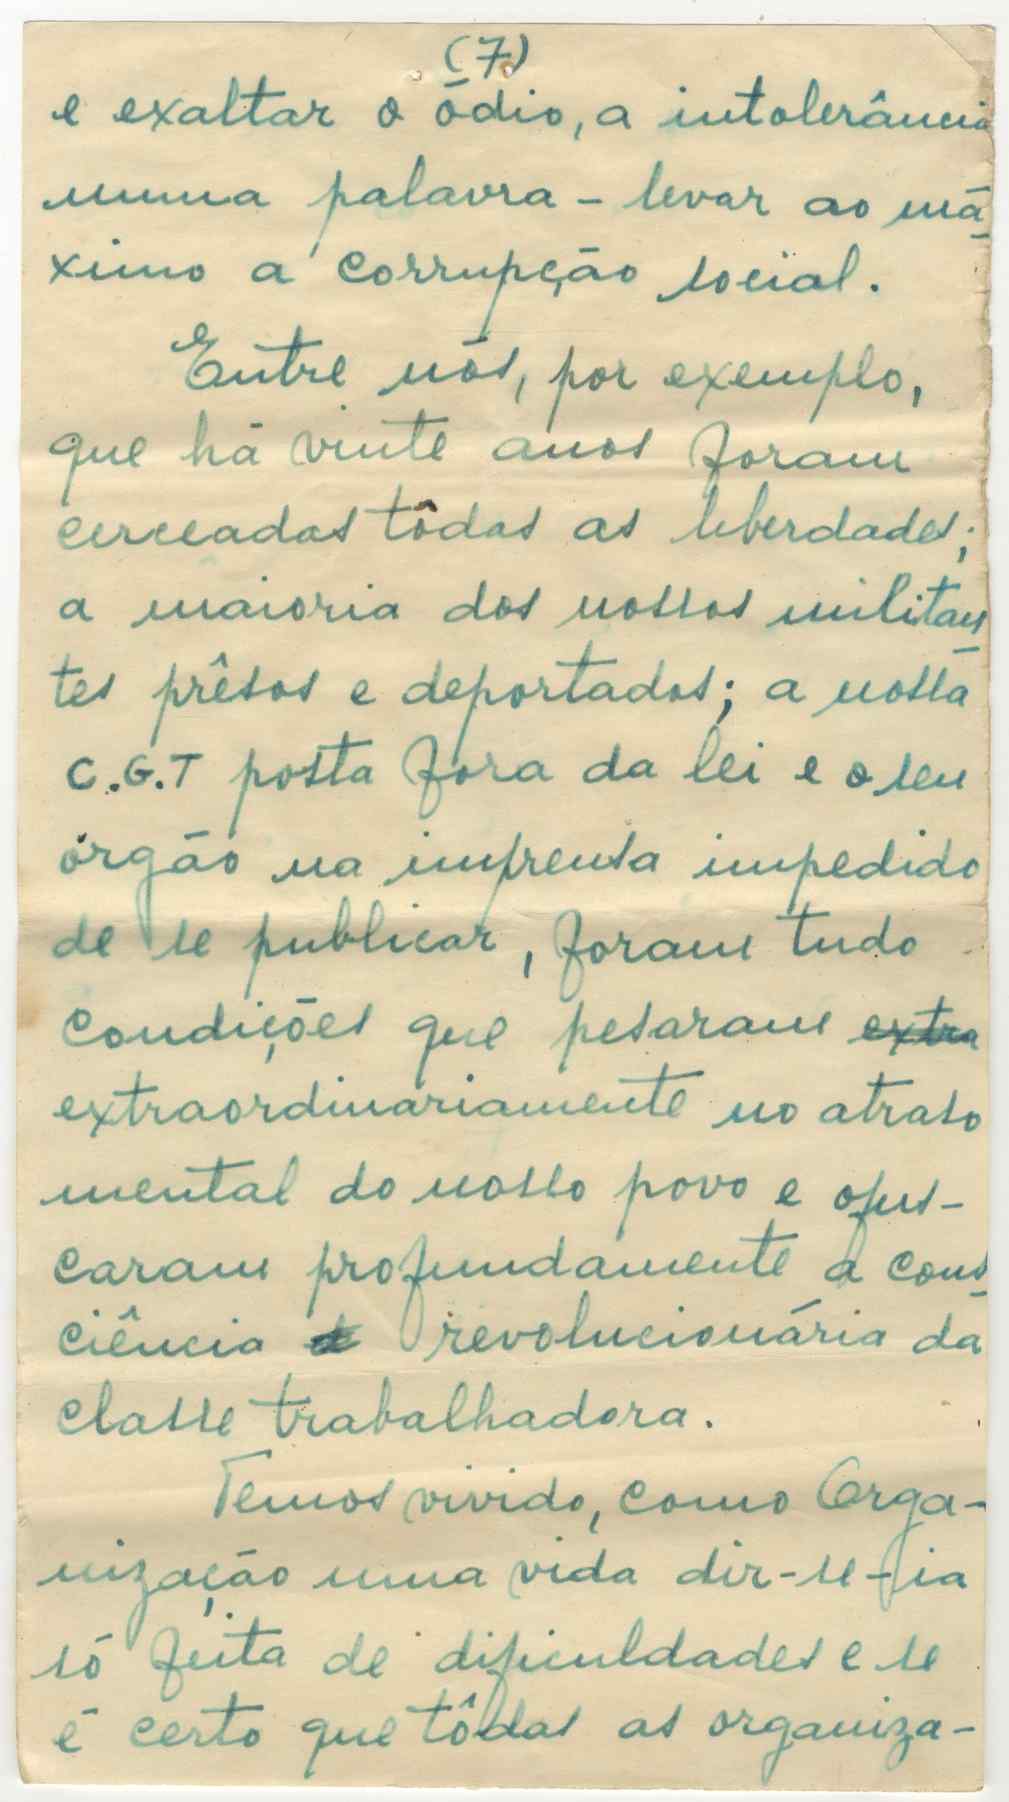 (7)
e exaltar o ódio, a intolerância
numa palavra - levar ao má-
ximo a corrupção social.
Entre nós, por exemplo,
que há vinte anos foram
cerceadas tôdas as liberdades;
a maioria dos nossos militan-
tes prêsos e deportados; a nossa
C.G.T posta fora da lei e o seu
órgão na imprensa impedido
de se publicar, foram tudo
condições que pesaram extra
extraordinariamente no atraso
mental do nosso povo e ofus-
caram profundamente a cons-
ciência revolucionária da
classe trabalhadora.
Temos vivido, como Orga-
nização uma vida dir-se-ia
só feita de dificuldades e se
é certo que tôdas as organiza-